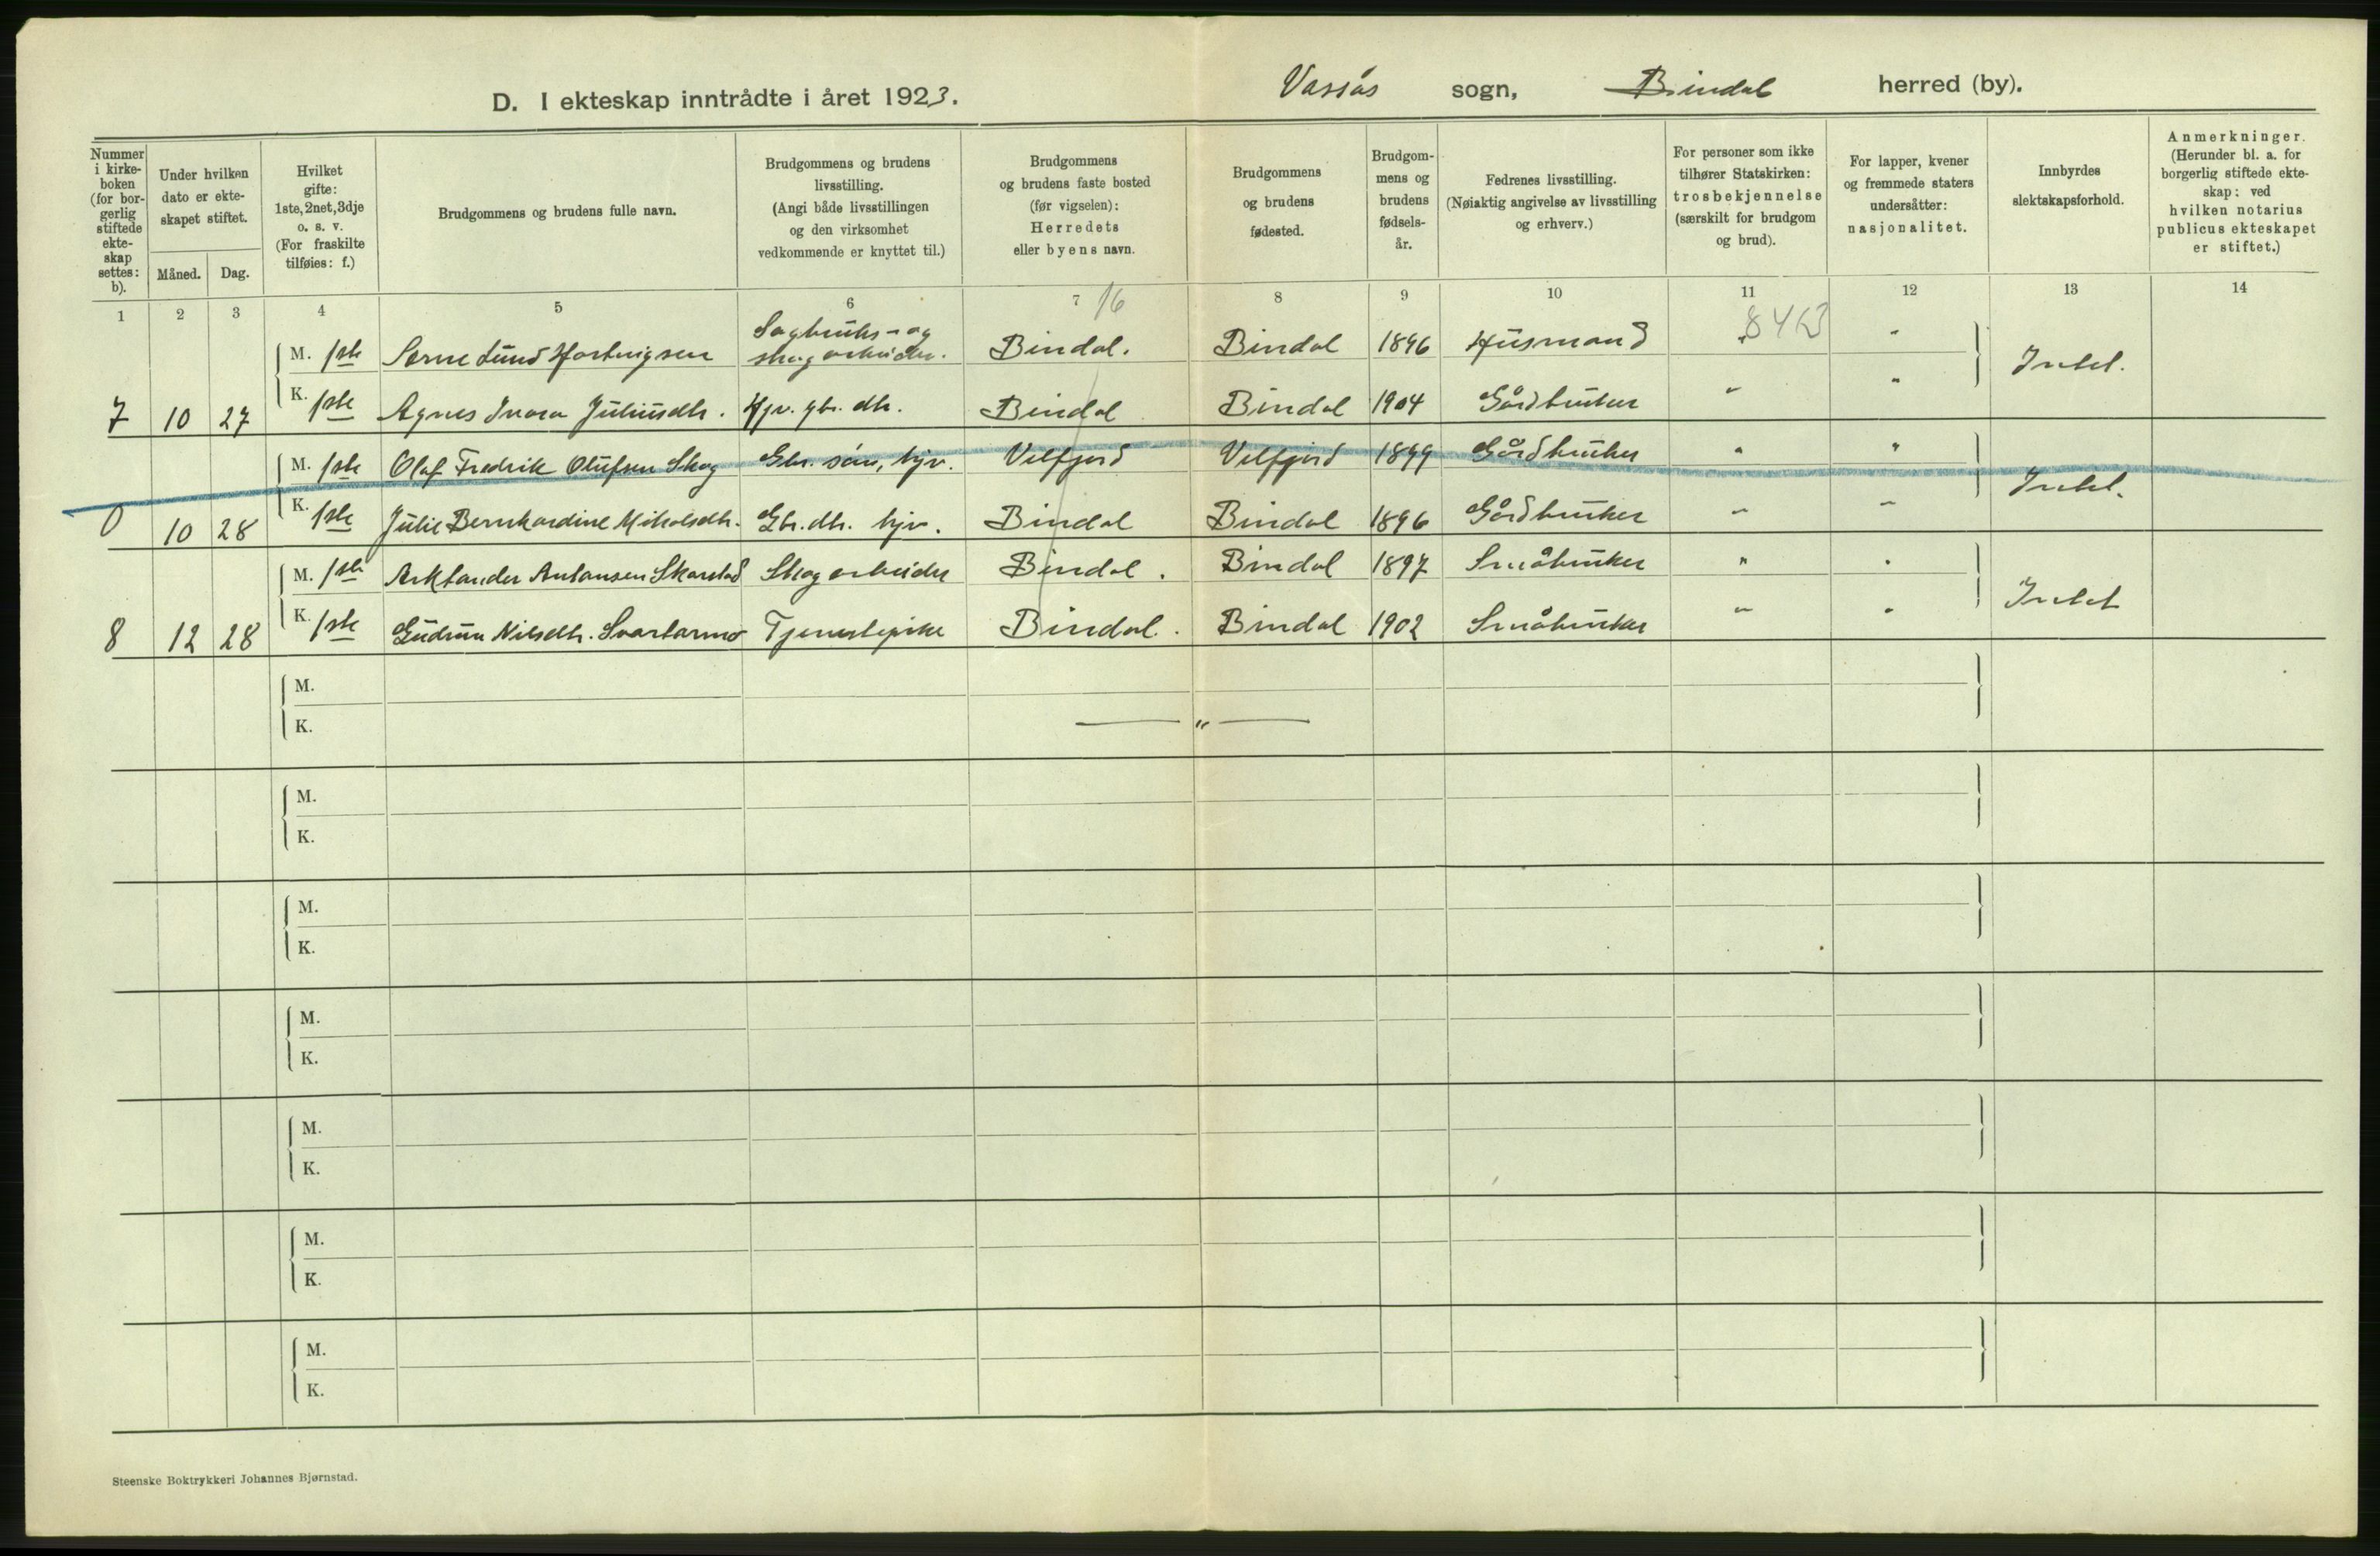 D. I ekteskap inntrådte i året 1923.
Vassås sogn, Bindal herred (by).
Nummer i kirke-boken (for bor-gerlig stiftede ekte-skap settes: b).
Under hvilken dato er ekte-skapet stiftet.
Måned. Dag.
Hvilket gifte: 1ste, 2net, 3dje o. s. v. (For fraskilte tilføies: f.)
Brudgommens og brudens fulle navn.
Brudgommens og brudens livsstilling. (Angi både livsstillingen og den virksomhet vedkommende er knyttet til.)
Brudgommens og brudens faste bosted (før vigselen): Herredets eller byens navn.
Brudgommens og brudens fødested.
Brudgom-mens og brudens fødsels-år.
Fedrenes livsstilling. (Nøiaktig angivelse av livsstilling og erhverv.)
For personer som ikke tilhører Statskirken: trosbekjennelse (særskilt for brudgom og brud).
For lapper, kvener og fremmede staters undersåtter: nasjonalitet.
Innbyrdes slektskapsforhold.
Anmerkninger. (Herunder bl. a. for borgerlig stiftede ekte-skap: ved hvilken notarius publicus ekteskapet er stiftet.)
1 2 3 4 5 6 7 8 9 10 11 12 13 14
16
M. 1ste Lund Hartvigsen Sagbruks- og skogarbeider. Bindal. Bindal 1896 Husmand " Intet.
7 10 27 K. 1ste Agnes Juliusdtr. Hjv. gbr. dtr. Bindal Bindal 1904 Gårdbruker " "
M. 1ste Olaf Fredrik Olufsen Skog Gbr. søn, hjv. Velfjord Velfjord 1899 Gårdbruker " " Intet.
0 10 28 K. 1ste Julie Bernhardine Gbr. dtr. hjv. Bindal Bindal 1896 Gårdbruker " "
M. 1ste Arktander Antonsen Skarstad Skogarbeider Bindal. Bindal 1897 Småbruker " " Intet
8 12 28 K. 1ste Gudrun Nilsdtr. Svartarmo Tjenestepike Bindal. Bindal 1902 Småbruker " "
M.
K. — " —
M.
K.
M.
K.
M.
K.
M.
K.
M.
K.
M.
K.
Steenske Boktrykkeri Johannes Bjørnstad.